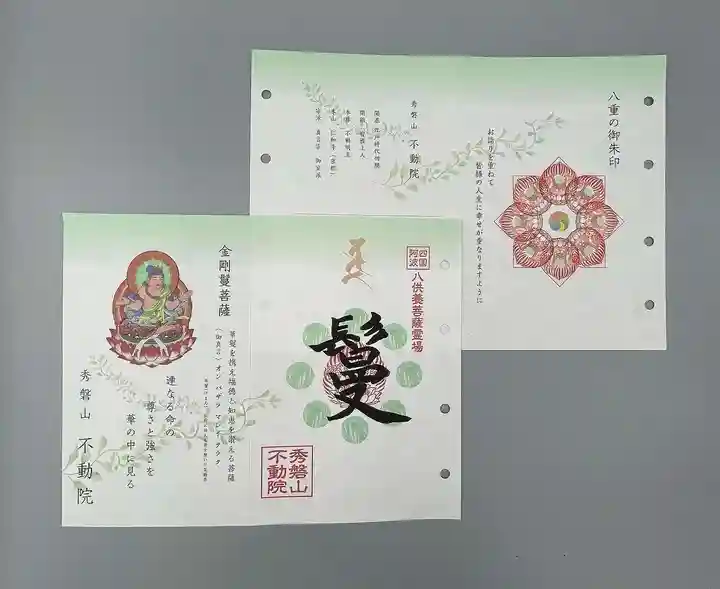 八重の御朱印
お詣りを重ねて
皆様の人生に幸せが重なりますように
秀磐山 不動院
本尊 不動明王
本山 仁和寺(京都)
宗派 真言宗 御室派
四国
阿波
八供養菩薩霊場
鬘
秀磐山
不動院
金剛鬘菩薩
華鬘を携え福徳と知恵を蓄える菩薩
(御真言)オン バザラ
連なる命の
尊さと強さを
華の中に見る
秀磐山 不動院